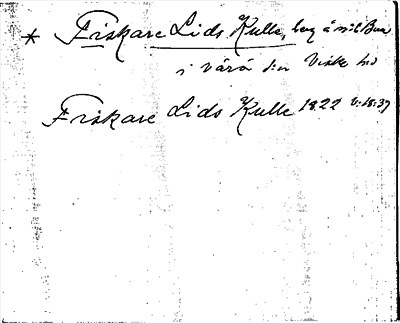 * Fiskare Lids Kulle, berg å
i Värö s:n Viske hd
Fiskare Lids Kulle 1822 V:18:39